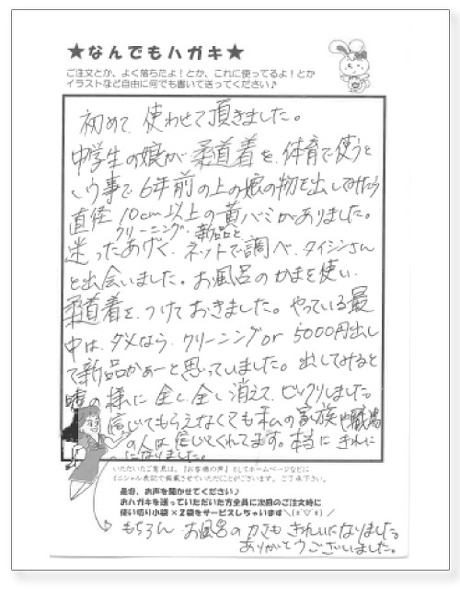 ★なんでもハガキ★
ご注文とか、よく落ちたよ！とか、これに使ってるよ！とか
イラストなど自由に何でも書いて送ってください♪
初めて使わせて頂きました。
中学生の娘が柔道着を、体育で使うと
いう事で6年前の上の娘の物を出してみたら
直径10cm以上の黄バミがありました。
クリーニング、新品と
迷ったあげく、ネットで調べ、タイジンさん
と出会いました。お風呂のかまを使い、
柔道着をつけておきました。やっている最
中は、ダメならクリーニングor5000円出し
て新品かぁーと思っていました。出してみると
嘘の様に全し全し消えて、ビックリしました。
信じてもらえなくても私の家族や職場
の人は信じてくれてます。本当にきれいに
になりました。
いただいたご意見は、『お客様の声』としてホームページなどに
イニシャル表記で掲載させていただくことがございます。ご了承下さい。
是非、お声を聞かせてください♪
おハガキを送っていただいた方全員に次回のご注文時に
使い切り小袋×2袋をサービスしちゃいます＼(≧▽≦)／
もちろん お風呂のカマもきれいになりました。
ありがとうございました。